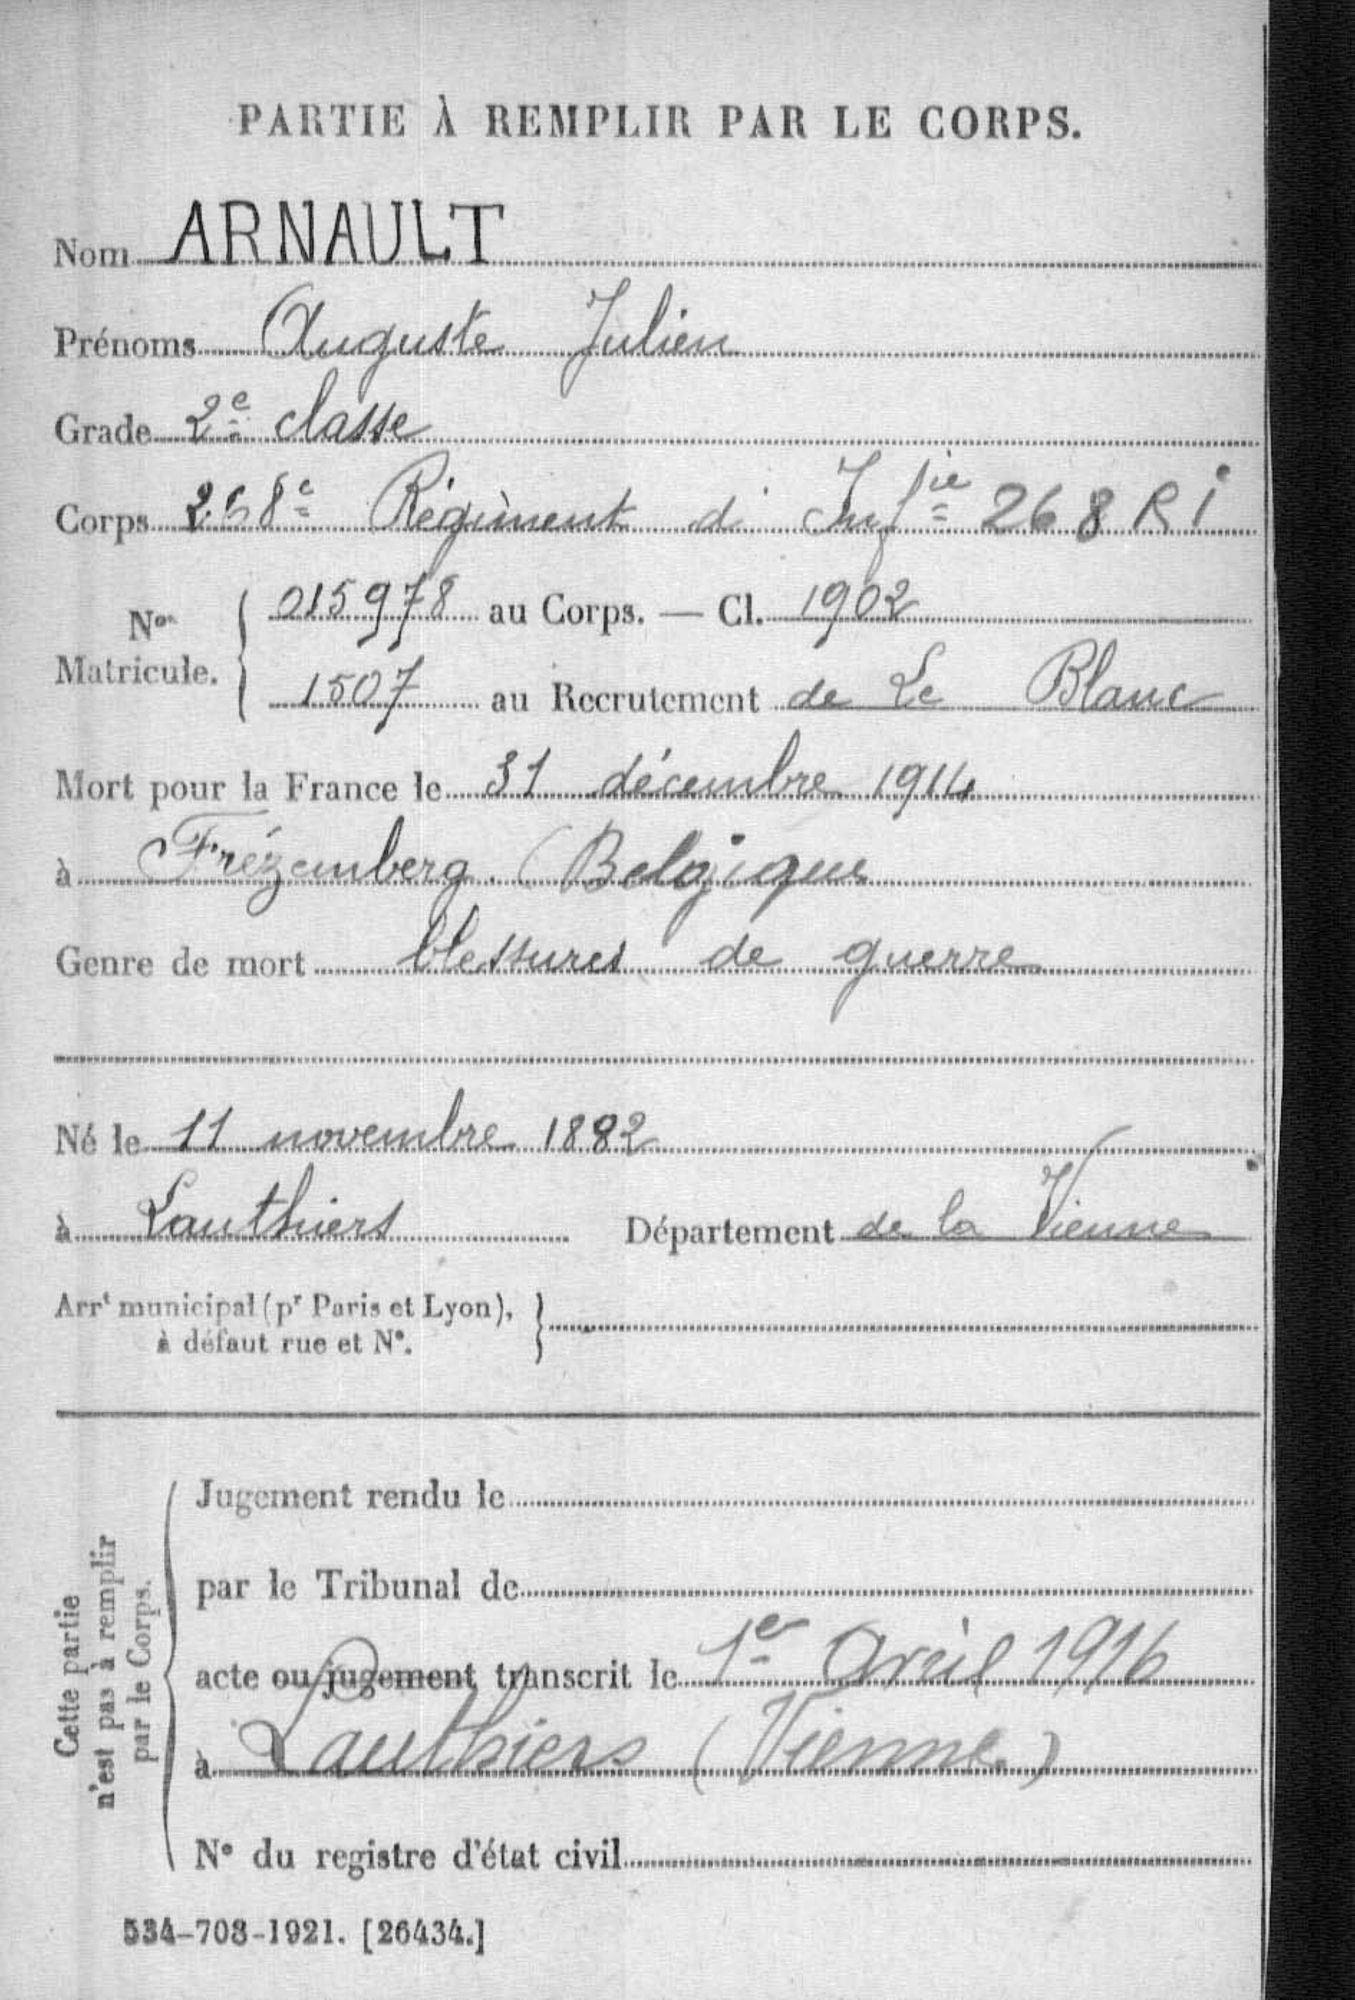 PARTIE À REMPLIR PAR LE CORPS.
Nom ARNAULT
Prénoms Auguste Julien
Grade 2e classe
Corps 268e Régiment d' Infie 268 RI
Nos Matricule. { 015978 au Corps. — Cl. 1902
1507 au Recrutement de Le Blanc
Mort pour la France le 31 décembre 1914
à Frézemberg. (Belgique
Genre de mort blessures de guerre
Né le 11 novembre 1882
à Lauthiers Département de la Vienne
Arrt municipal (pr Paris et Lyon),
à défaut rue et N°.
Cette partie
n'est pas à remplir
par le Corps.
Jugement rendu le
par le Tribunal de
acte ou jugement transcrit le 1er Avril 1916
à Lauthiers (Vienne)
N° du registre d'état civil
534-708-1921. [26434.]